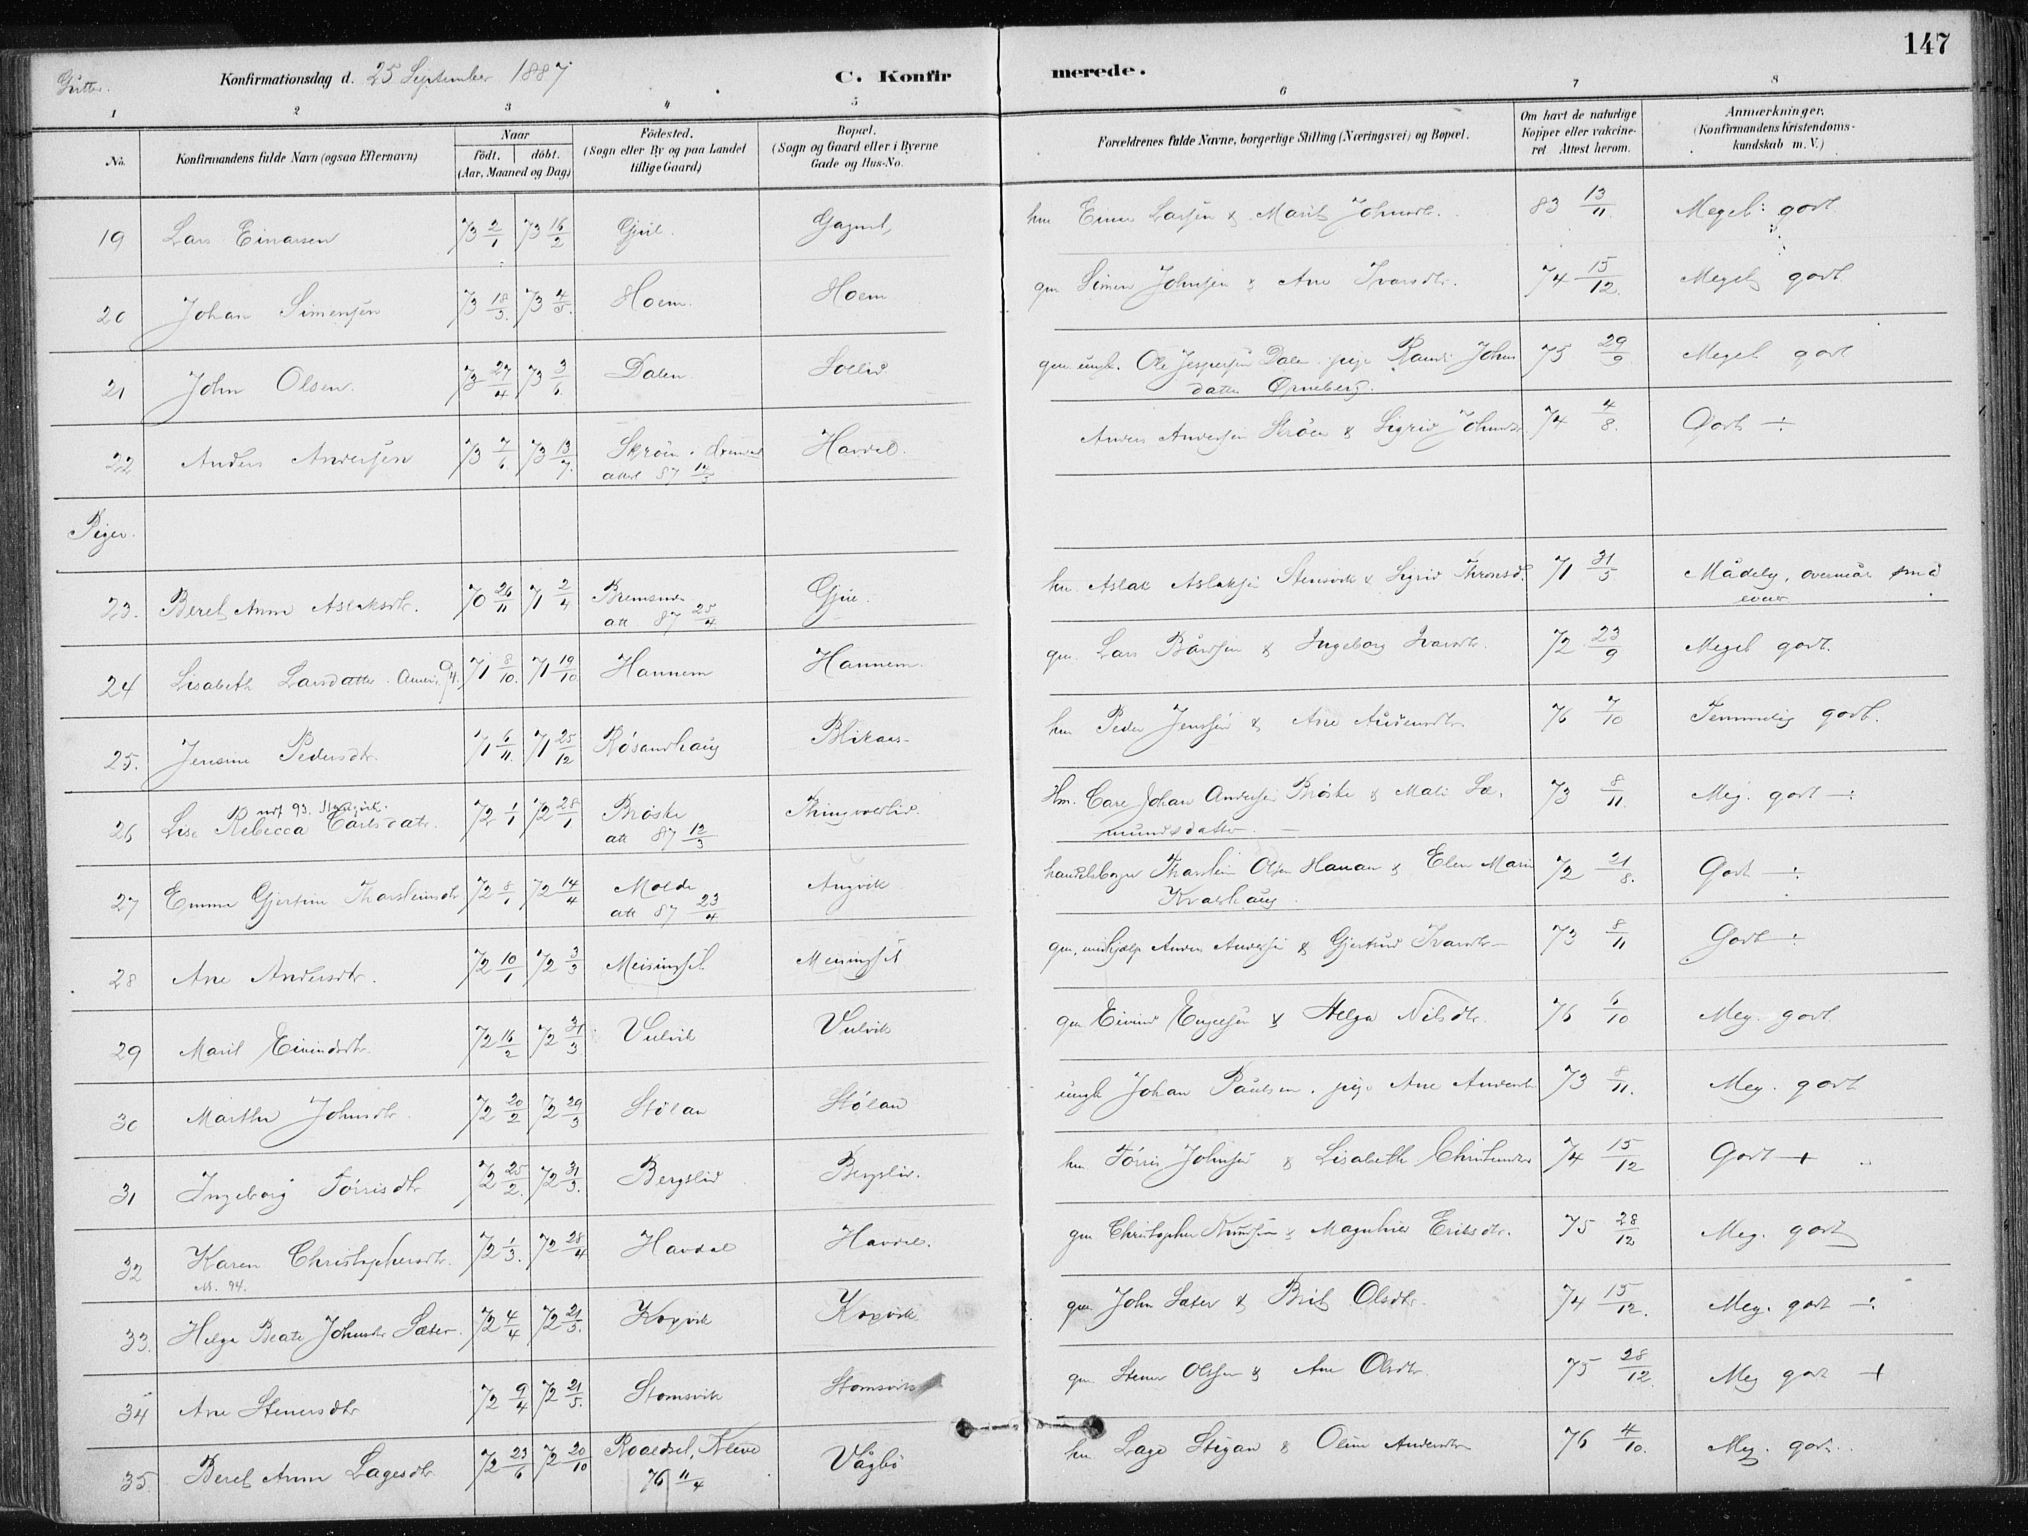 147
Gutter. Konfirmationsdag d. 25 September 1887 C. Konfirmerede.
1 2 3 4 5 6 7 8
No. Konfirmandens fulde Navn (ogsaa Efternavn) Naar födt. döbt. (Aar, Maaned og Dag) Födested. (Sogn eller By og paa Landet tillige Gaard) Bopæl. (Sogn og Gaard eller i Byerne Gade og Hus-No. Forældrenes fulde Navne, borgerlige Stilling (Næringsvei) og Bopæl. Om havt de naturlige Kopper eller vakcineret Attest herom. Anmærkninger. (Konfirmandens Kristendomskundskab m. V.)
19 Lars Einarsen 73 2/1 73 16/2 hm Einar Larsen & Marit Johnsdtr. 83 13/11 Meget godt
20 Johan Simensen 73 18/3 73 4/5 Hoem Hoem gm Simen Johnsen & Ane Ivarsdtr. 74 15/12 Meget godt
21 John Olsen 73 27/4 73 3/6 Dalen Sollid gm. ungk. Ole Jespersen Dalen pige Randi Johns 75 29/9 Meget godt
datter Örneberg.
22 Anders Andersen 73 7/6 73 13/7 Skröen Havdal. Anders Andersen Skröen & Sigrid Johnsdtr 74 4/8 Godt ÷
attest 87 12/3
Piger.
23. Beret Anna Aslaksdtr. 70 26/11 71 2/4 Bremsnes Gjul hm. Aslak Aslaksen Stensvik & Sigrid Thronsd. 71 31/5 Mådelig, overmåde små
att 87 25/4 evner
24 Lisabeth Larsdatter 71 8/10 71 19/10 Hannem Hannem gm. Lars Bårdsen & Ingeborg Ivarsdtr. 72 23/9 Meget godt.
25. Jensine Pedersdtr. 71 6/11 71 25/12 Røsandhaug Blikaas hm Peder Jensen & Ane Audensdtr 76 7/10 Temmelig godt.
26 Lise Rebecca Carlsdatr. 72 1/1 72 28/1 Brøske Thingvoldlid. Hm. Carl Johan Andersen Brøske & Mali Sæ- 73 8/11 Meg. godt ÷
att 87 12/3 mundsdatter
27 Emma Gjertine Thorsteinsdtr 72 8/1 72 14/4 Molde Angvik handelsborger Thorstein Olsen Hanan & Elen Marie 72 21/8. Godt ÷
att 87 23/4 Kvalhaug
28 Ane Andersdtr. 72 10/1 72 3/3 Meisingset Meisingset gm. Anders Andersen & Gjertrud Ivarsdtr 73 8/11 Godt ÷
29 Marit Eivindsdtr. 72 16/2 72 31/3 Vulvik Vulvik gm Eivind Engelsen & Helga Nilsdtr. 76 6/10 Meg. godt
30 Marthe Johnsdtr. 72 20/2 72 29/3 Stølan Stølan ungk Johan Paulsen. pige Ane Andersdt 73 8/11. Meg. godt
31 Ingeborg Törrisdtr 72 25/2. 72 31/3. Bergslid Bergslid. hm Törris Johnsen & Lisabeth Christensdtr 74 15/12 Godt +
32 Karen Christophersdtr. 72 1/3. 72 28/4 Havdal Havdal. gm Christopher Knudsen & Magnhild Eriksdtr. 75 28/12 Meg. godt
33. Helga Beate Johnsdtr Sæter 72 4/4 72 21/5. Koxvik Koxvik gm John Sæter & Brit Olsdtr. 74 15/12. Meg. godt ÷
34 Ane Stenersdtr 72 9/4 72 21/5. Stomsvik Stomsvik gm Stener Olsen & Ane Olsdtr. 75 28/12. Meg godt +
35. Beret Anna Lagesdtr 72 23/6 72 20/10 Roaldset, Kleive Vågbö hm Lage Stigan & Oline Andersdtr 76 4/10. Meg. godt.
76 11/4